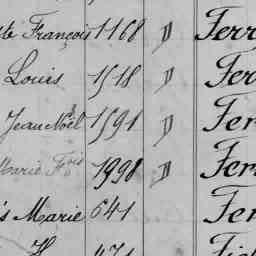 te François 1168 " Ferr
Louis 1518 " Fer
Jean Noël 1591 " Fer
Marie Fçois 1998 " Fer
s Marie 641 Fer
471